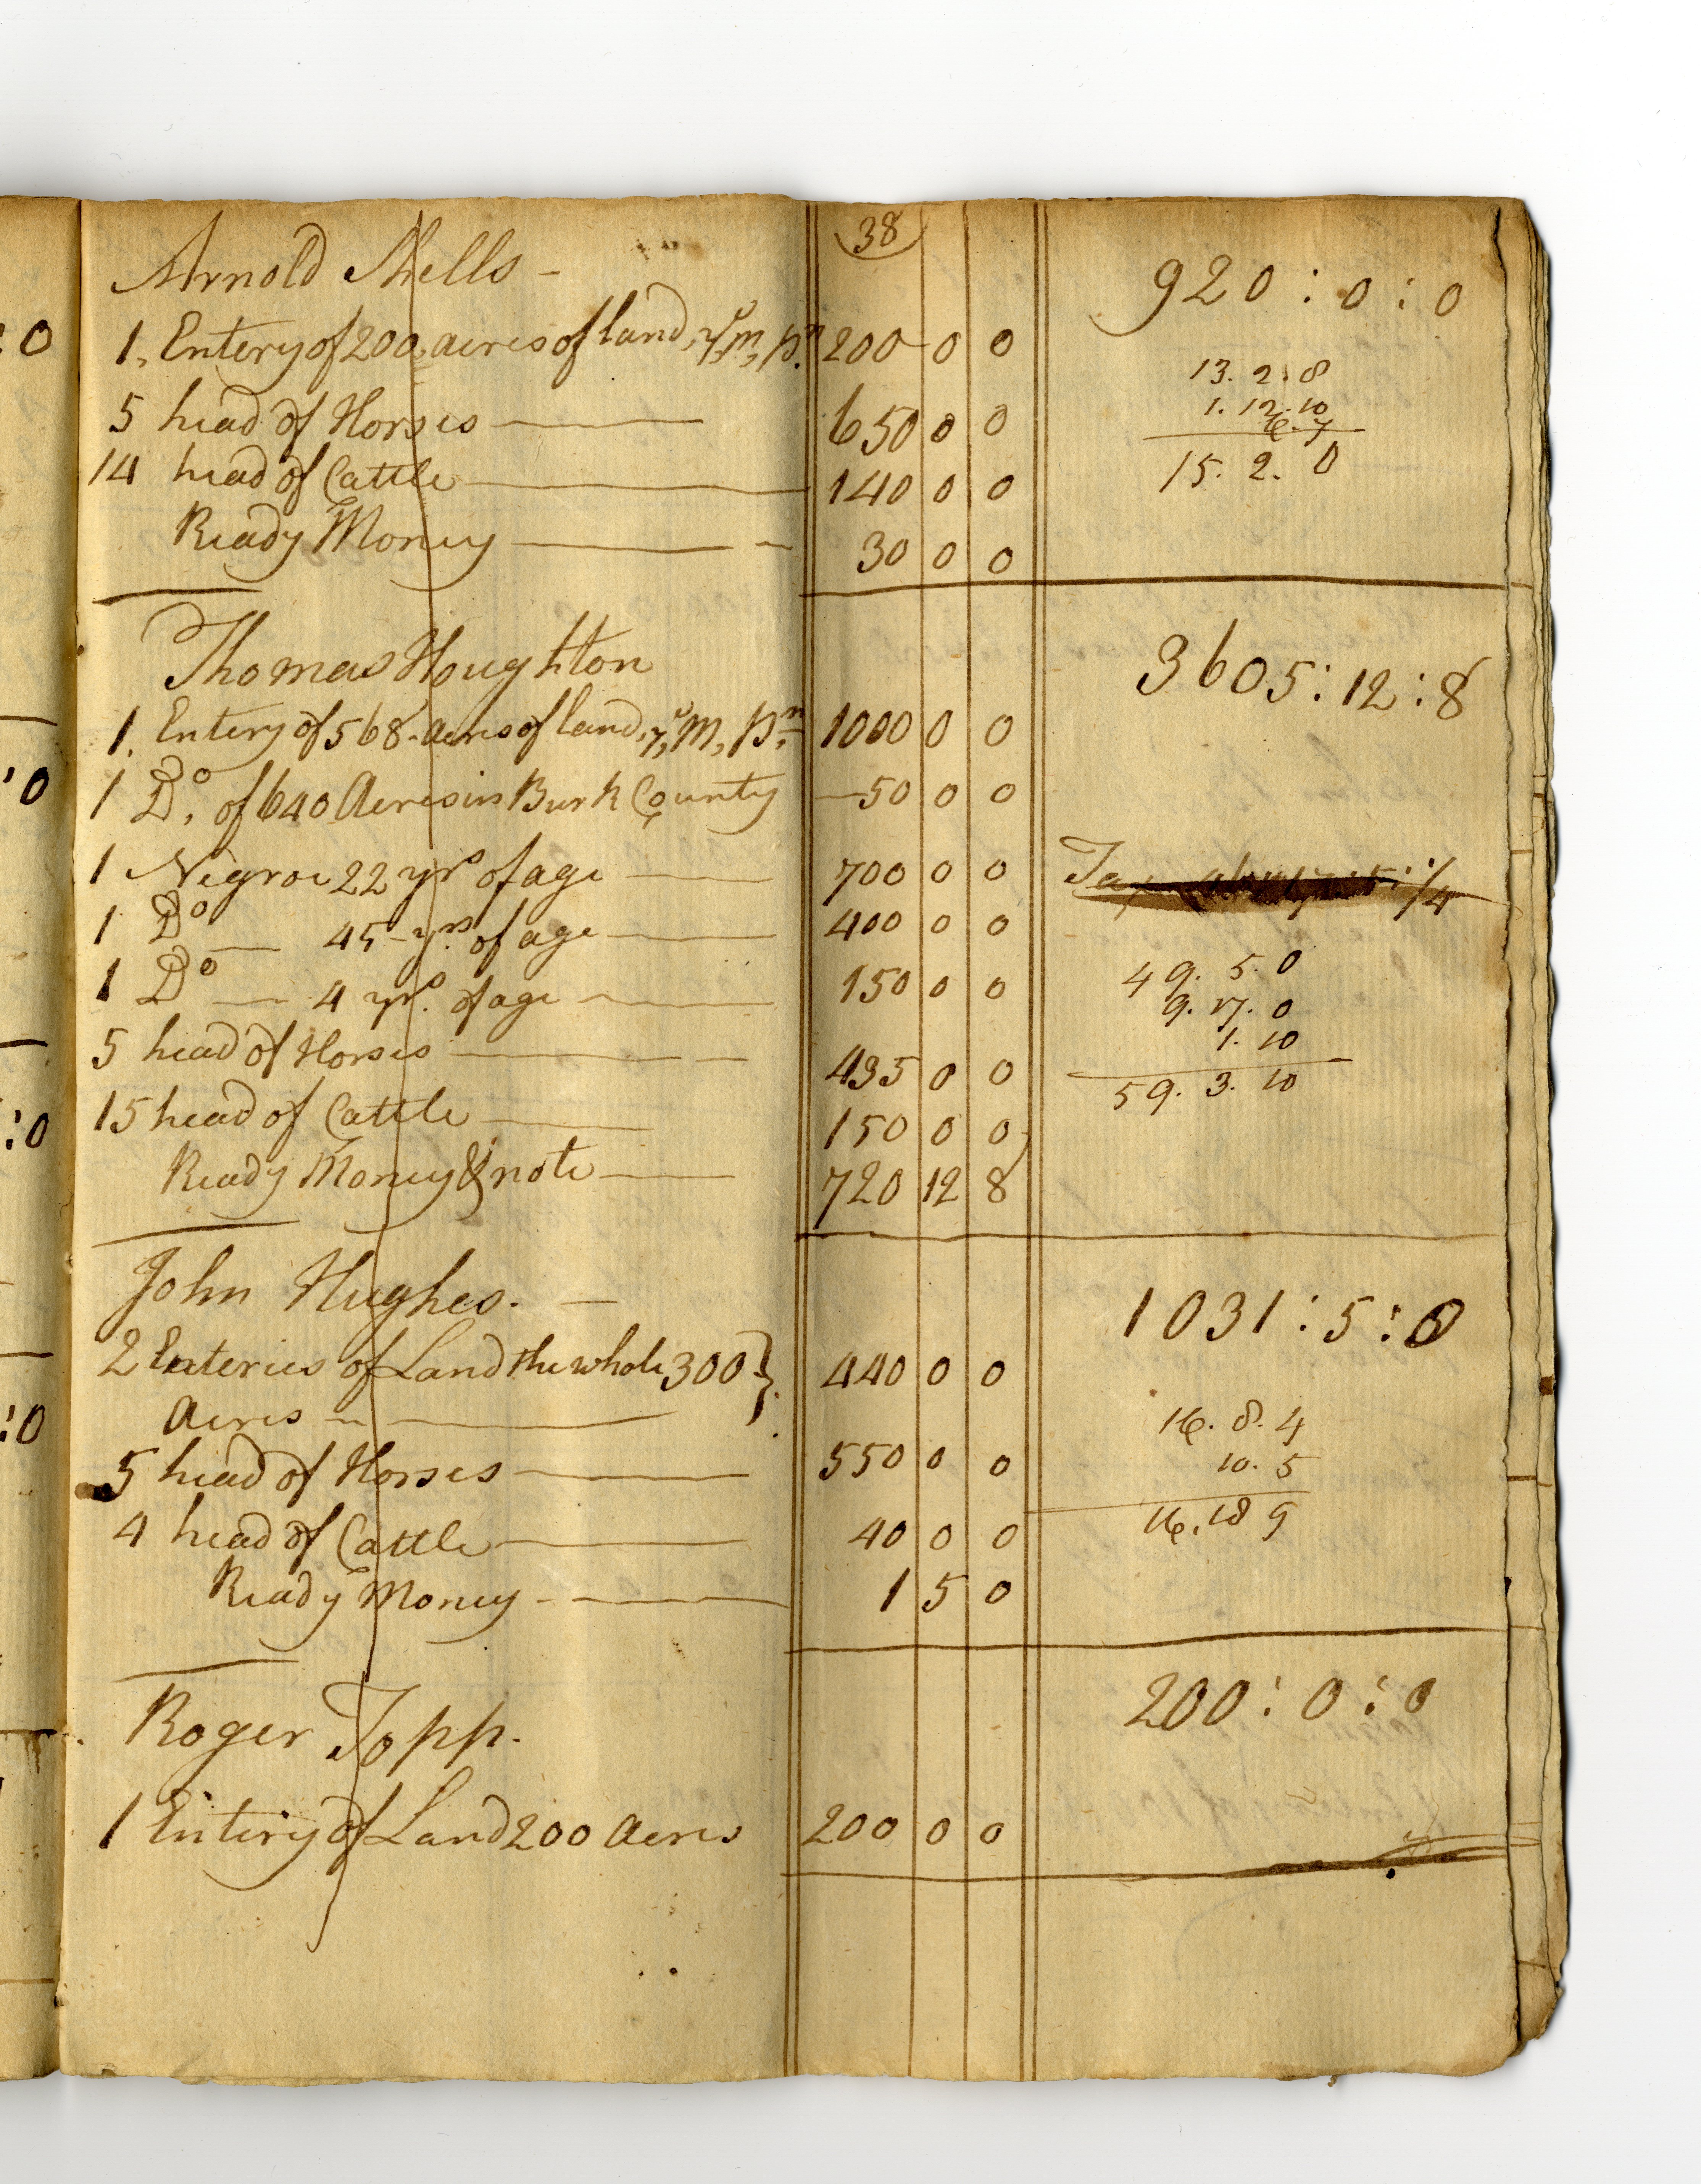 38
Arnold Shells - 920 : 0 : 0
1, Entery of 200 acres of land, 200 0 0
13. 2. 8
5 head of Horses 650 0 0
1. 12. 10
6. 7
14 head of Cattle 140 0 0
15. 2. 0
Ready Money 30 0 0
Thomas Houghton 3605 : 12 : 8
1. Entery of 568 acres of land, 1000 0 0
1 Do. of 640 Acres in Burk County 50 0 0
1 Negroe 22 yrs of age 700 0 0
Tax
1 Do 45 yrs of age 400 0 0
49. 5. 0
1 Do 4 yrs. of age 150 0 0
9. 17. 0
1. 10
5 head of Horses 435 0 0
59. 3. 10
15 head of Cattle 150 0 0
Ready Money & note 720 12 8
John Hughes. 1031 : 5 : 0
2 Enteries of Land the whole 300 } 440 0 0
Acres
16. 8. 4
5 head of Horses 550 0 0
10. 5
4 head of Cattle 40 0 0
16. 18 9
Ready Money 1 5 0
Roger Topp. 200 : 0 : 0
1 Entery of Land 200 Acres 200 0 0
:0
'0
:0
:0